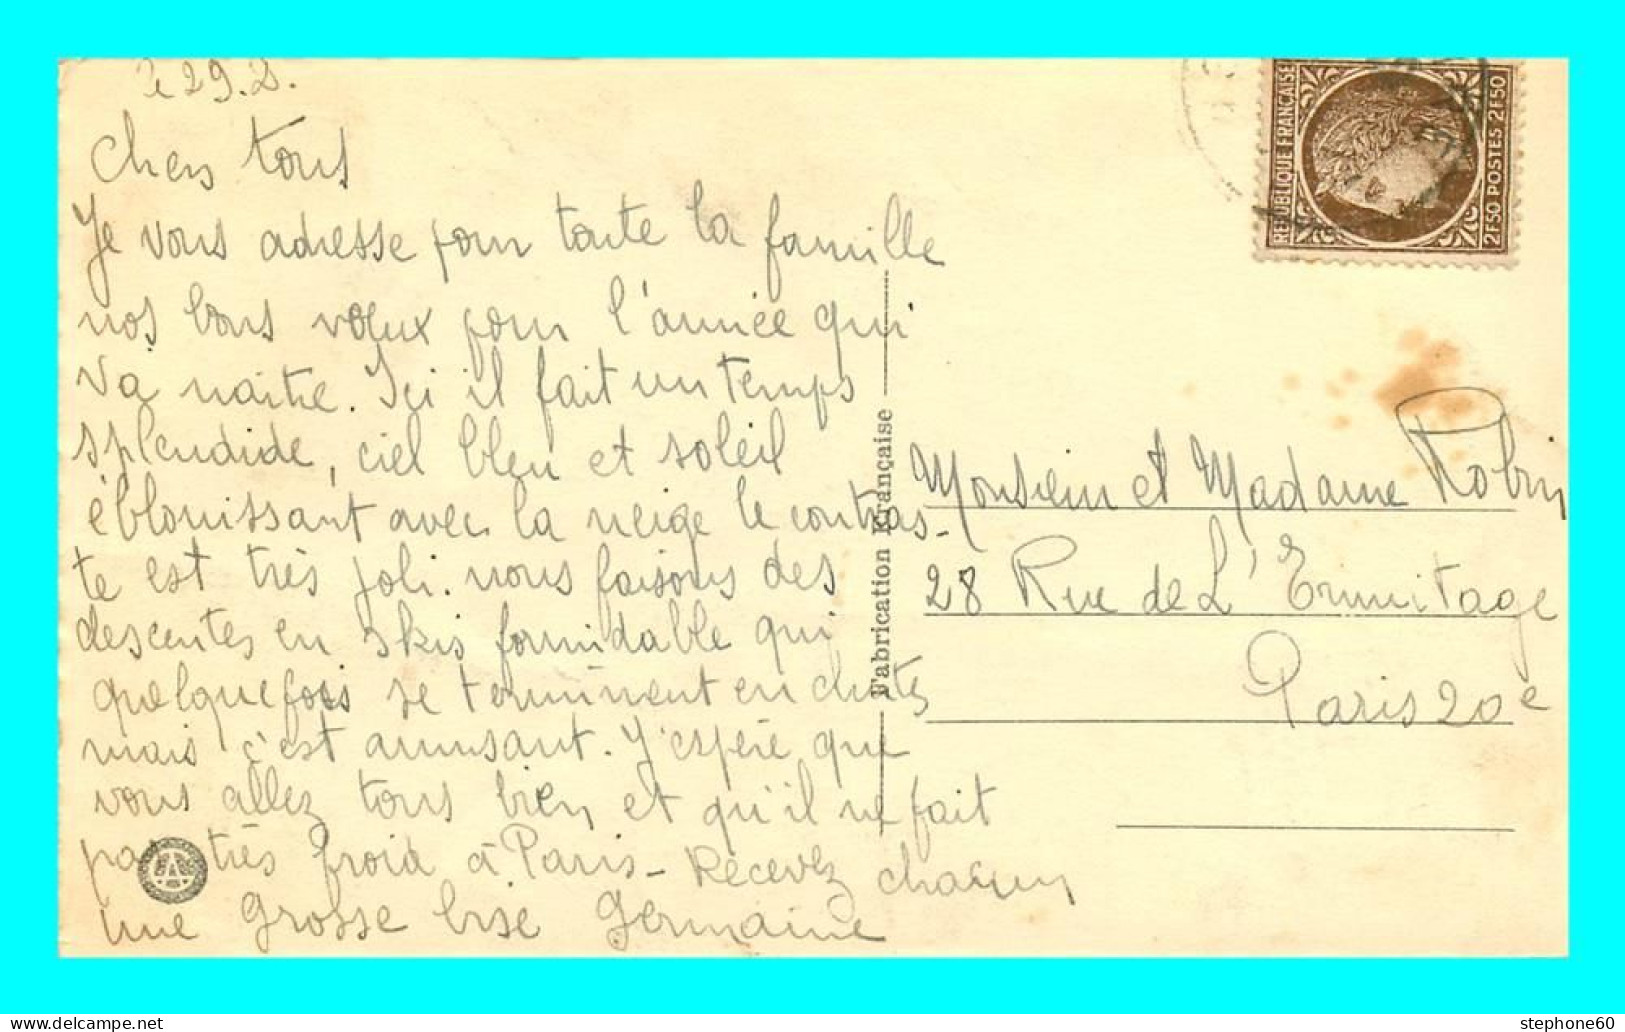 le 29.D.
Chers tous
Je vous adresse pour toute la famille
nos bons voeux pour l'année qui
va naître. Ici il fait un temps
splendide, ciel bleu et soleil
éblouissant avec la neige le contras-
te est très joli. nous faisons des
descentes en skis formidable qui
quelquefois se terminent en chutes
mais c'est amusant. J'espère que
vous allez tous bien et qu'il ne fait
pas très froid à Paris - Recevez chacun
une grosse bise Germaine
Fabrication Française
REPUBLIQUE FRANÇAISE
2F50 POSTES 2F50
Monsieur et Madame Robin
28 Rue de L'Ermitage
Paris 20e
stephone60